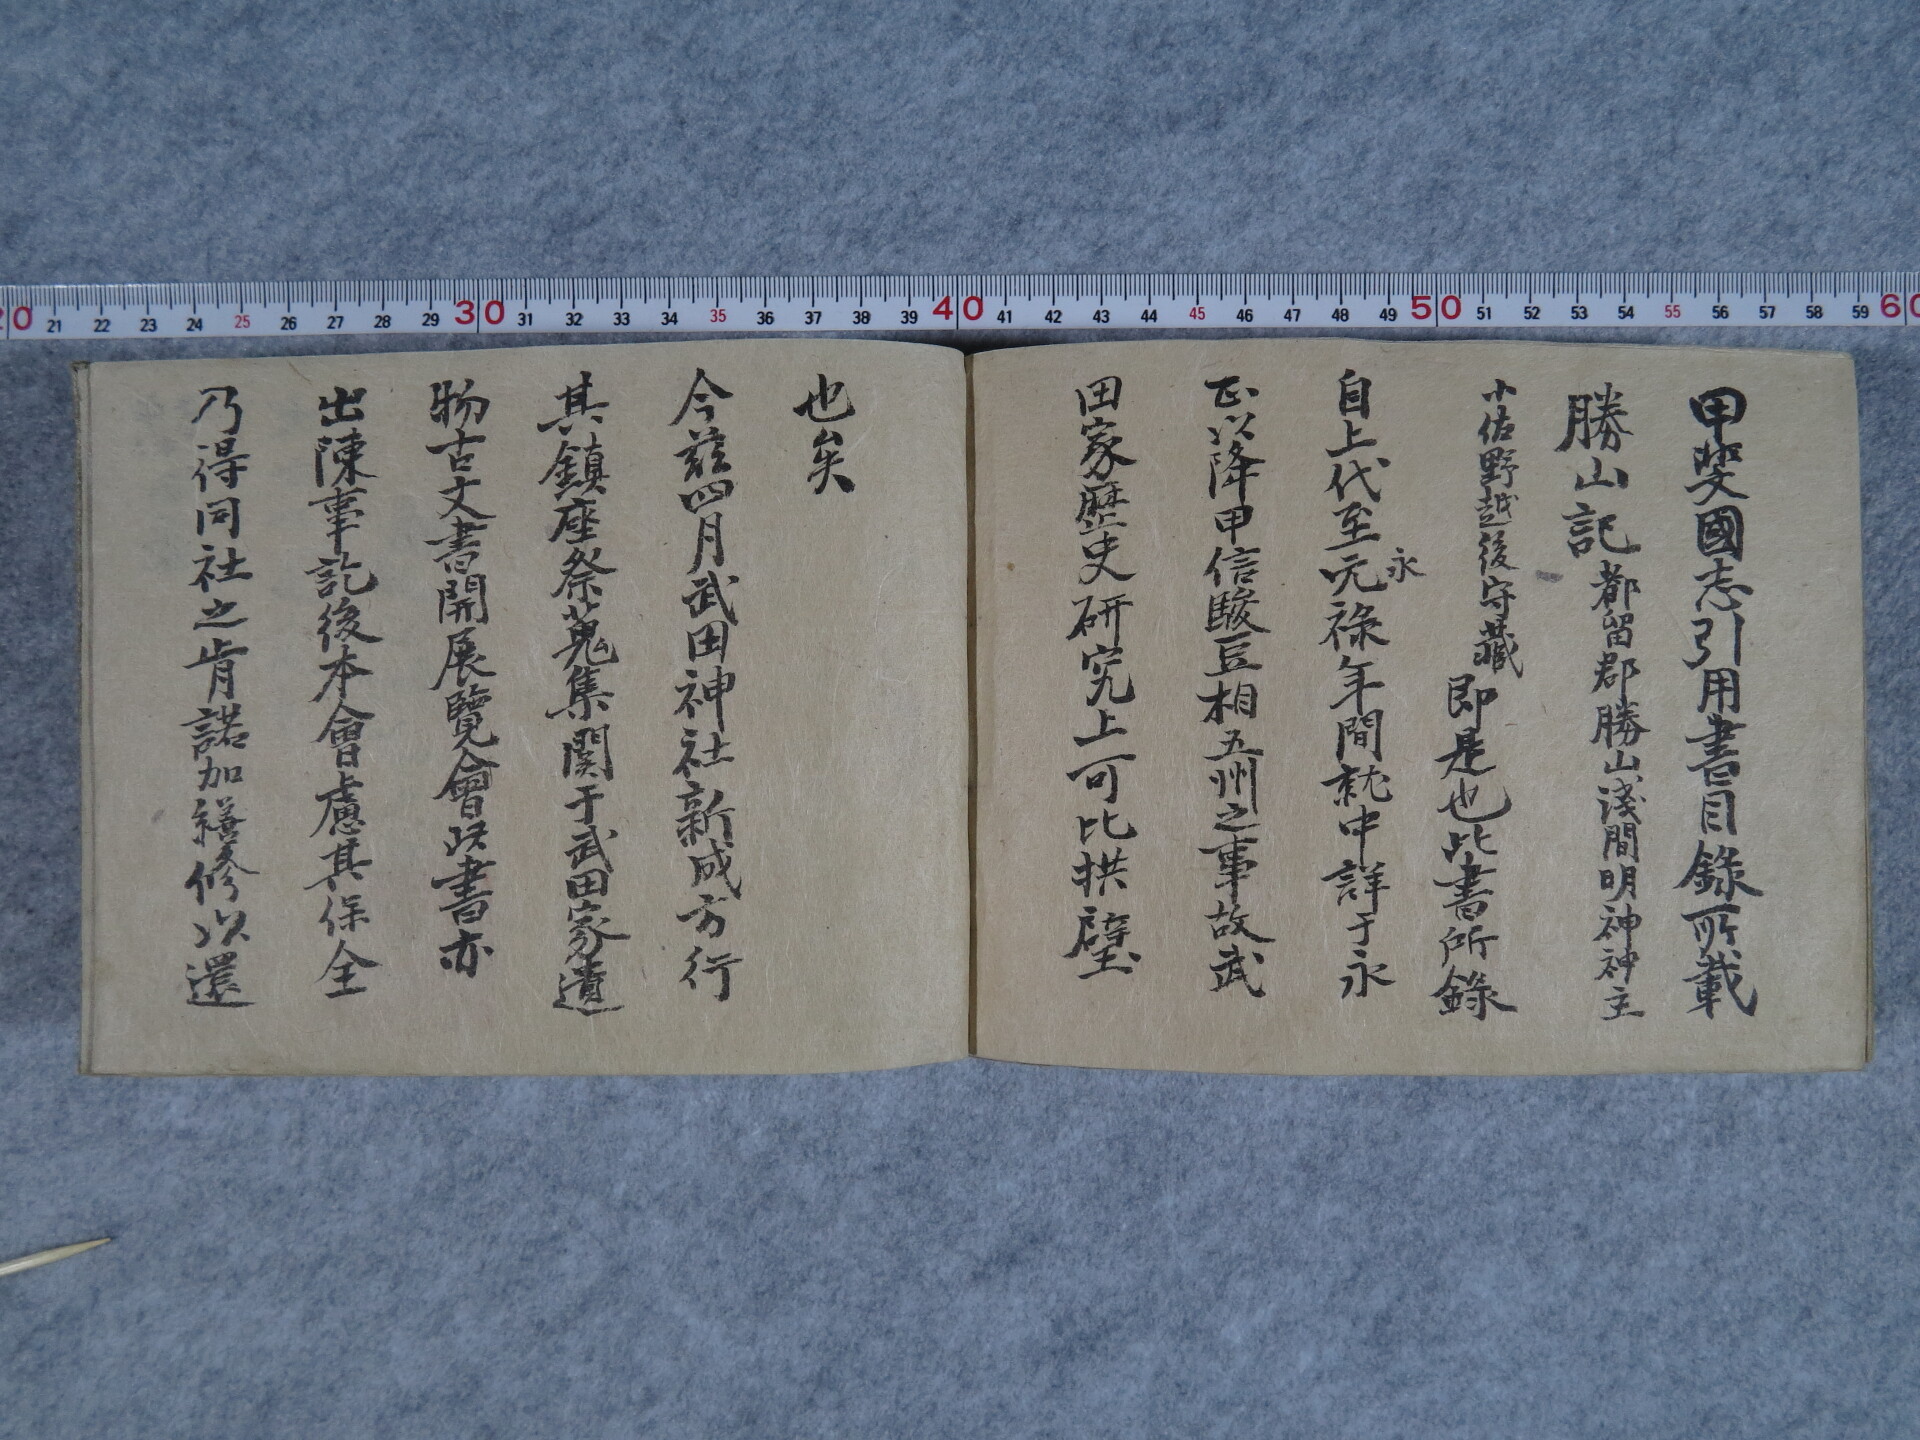 甲斐國志引用書目錄所載
勝山記都留郡勝山淺間明神神主
小佐野越後守藏即是也比書所錄
自上代至元禄年間就中詳于永
永
正以降甲信駿豆相五州之事故武
田家歴史研究上可比拱璧
也矣
今茲四月武田神社新成方行
其鎮座祭蒐集関于武田家遺
物古文書開展覽會此書亦
出陳事訖後本會慮其保全
乃得同社之肯諾加繕修以還
20 21 22 23 24 25 26 27 28 29 30 31 32 33 34 35 36 37 38 39 40 41 42 43 44 45 46 47 48 49 50 51 52 53 54 55 56 57 58 59 60